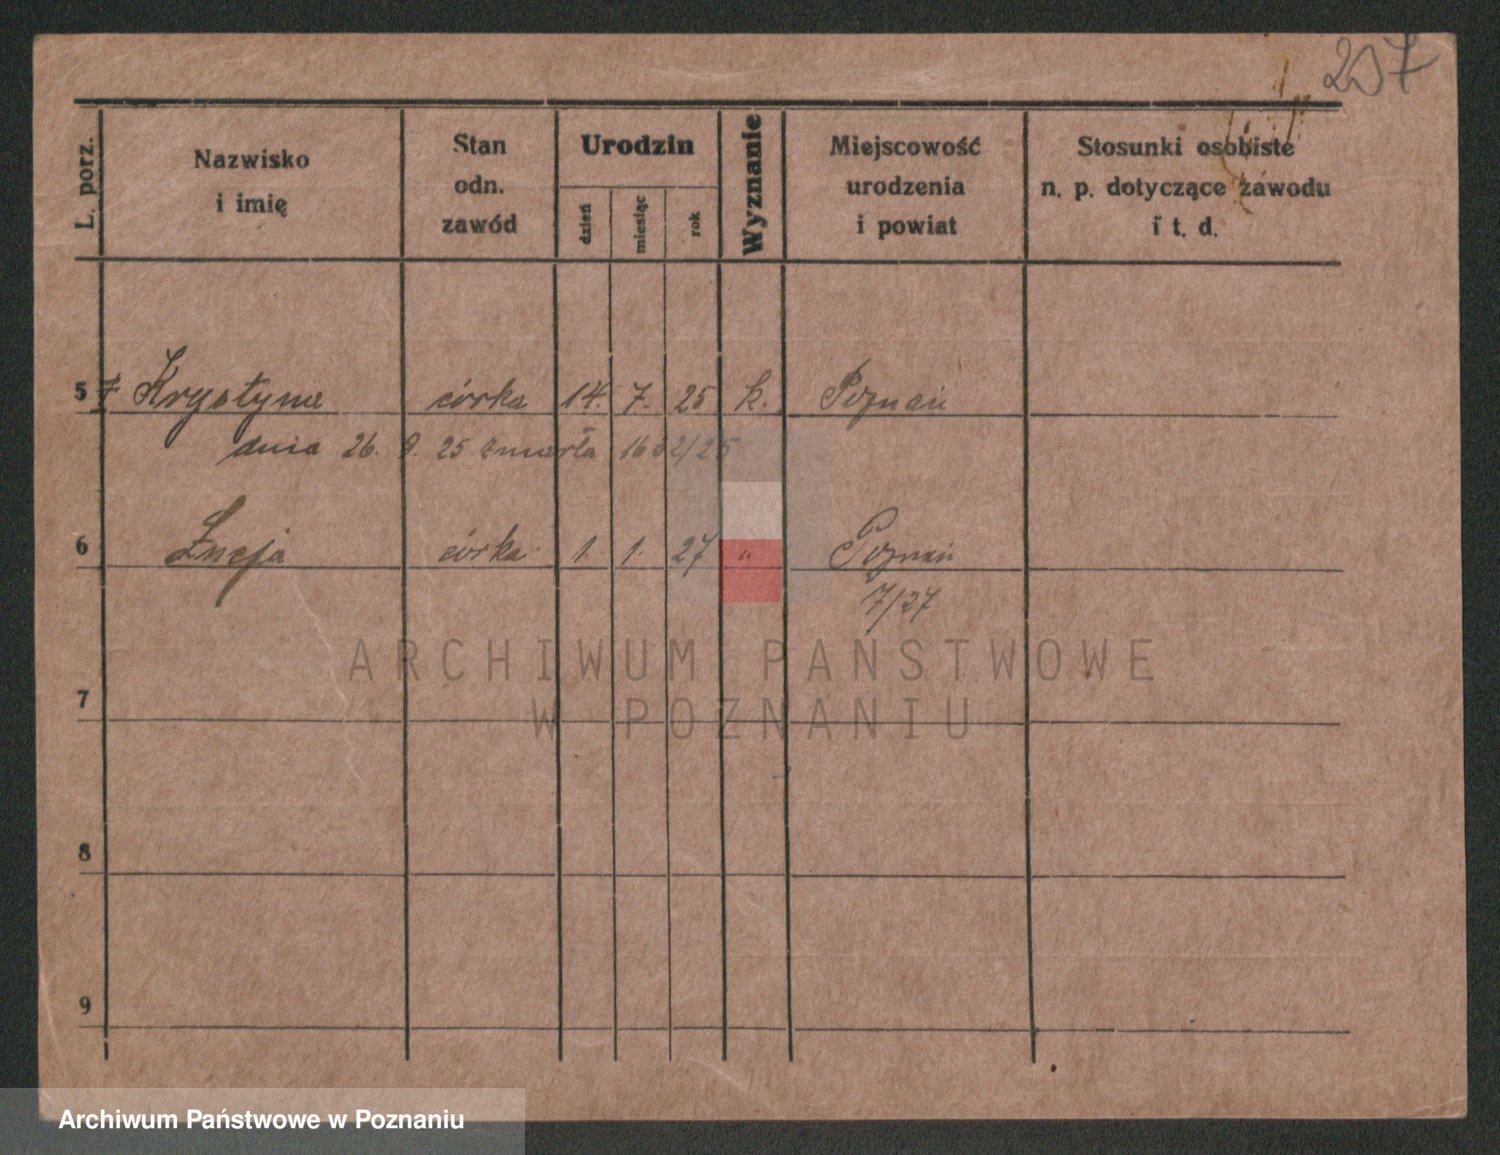 237
L. porz.
Nazwisko
i imię
Stan
odn.
zawód
Urodzin
dzień
miesiąc
rok
Wyznanie
Miejscowość
urodzenia
i powiat
Stosunki osobiste
n. p. dotyczące zawodu
i t. d.
5 Krystyna córka 14. 7. 25 k. Poznań
dnia 26. 9. 25 zmarła 1632/25
6 Łucja córka 1. 1. 27 " Poznań
7/27
ARCHIWUM PAŃSTWOWE
W POZNANIU
7
8
9
Archiwum Państwowe w Poznaniu